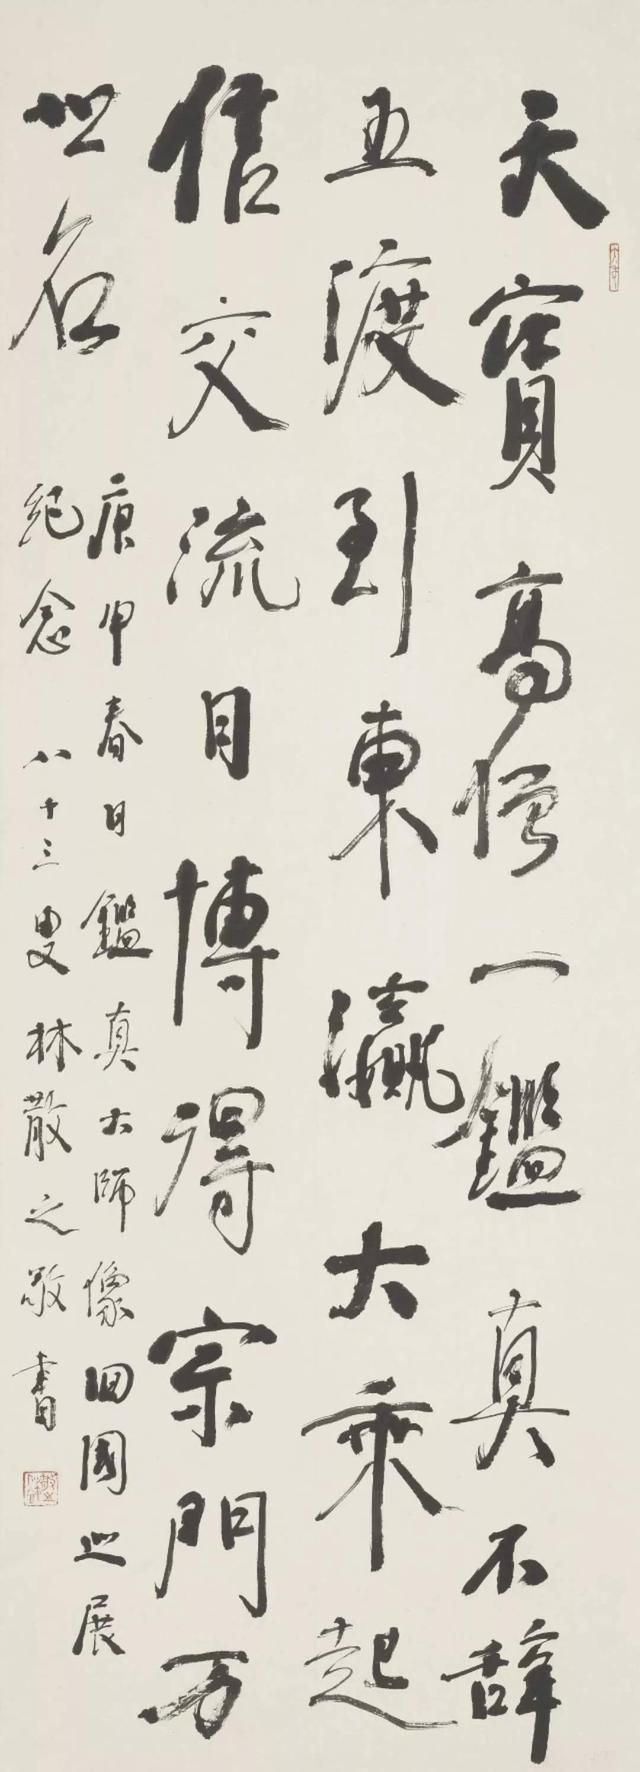 天寶高僧一鑑真不辞
五渡到東瀛大乘起
信交流日博得宗門万
世名
庚申春日鑑真大師像回國巡展
紀念 八十三叟林散之敬書